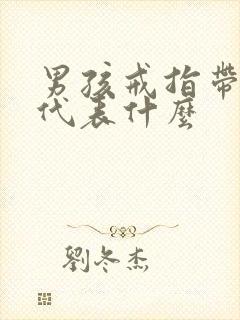 男孩戒指帶
代表什麼
劉冬杰